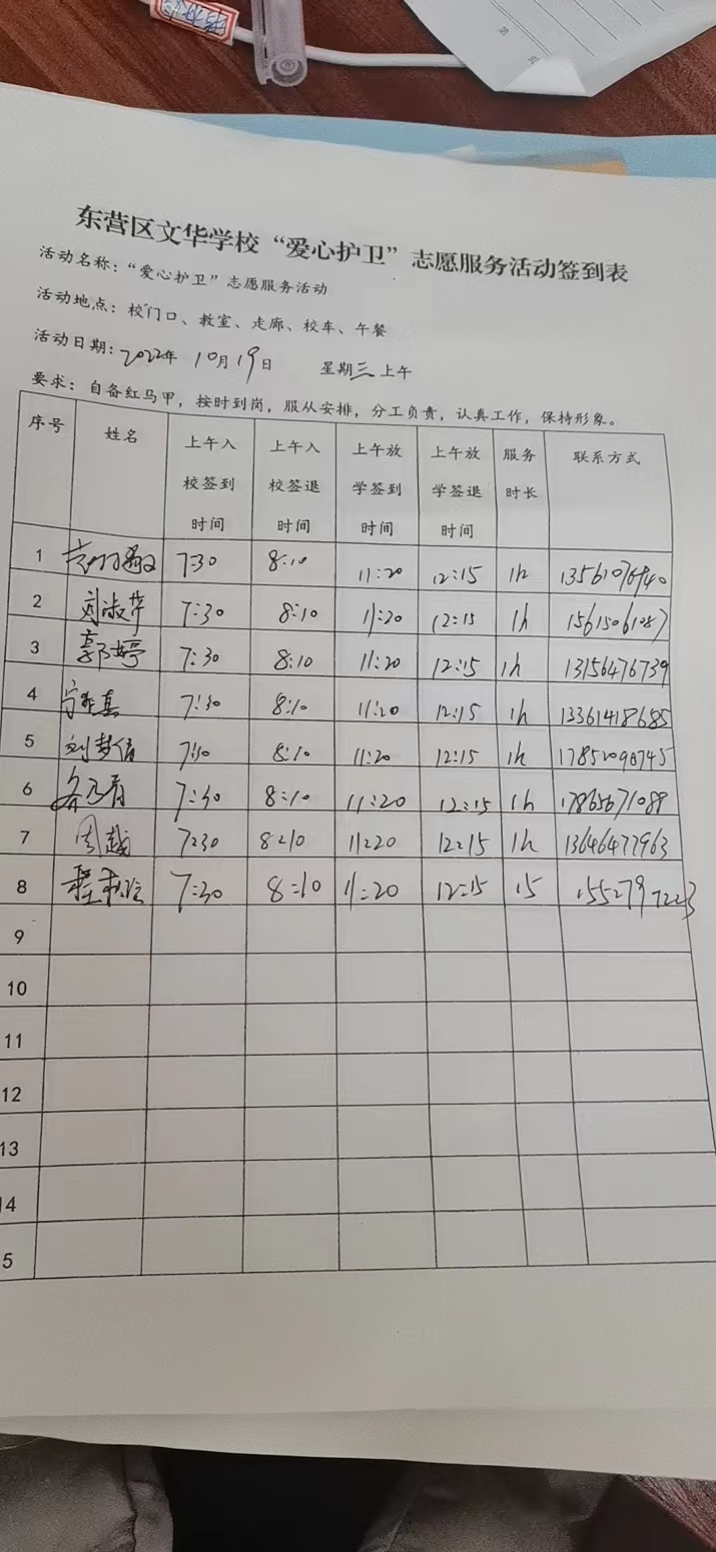 东营区文华学校“爱心护卫”志愿服务活动签到表
活动名称：“爱心护卫”志愿服务活动
活动地点：校门口、教室、走廊、校车、午餐
活动日期：2022年 10月19日 星期三上午
要求：自备红马甲，按时到岗，服从安排，分工负责，认真工作，保持形象。
序号 姓名 上午入校签到时间 上午入校签退时间 上午放学签到时间 上午放学签退时间 服务时长 联系方式
1 7:30 8:10 11:20 12:15 1h
2 刘淑萍 7:30 8:10 11:20 12:15 1h 15615061087
3 郭婷 7:30 8:10 11:20 12:15 1h 13156476739
4 7:30 8:10 11:20 12:15 1h 13361418685
5 刘梦倩 7:30 8:10 11:20 12:15 1h
6 7:30 8:10 11:20 12:15 1h 17865671089
7 周越 7:30 8:10 11:20 12:15 1h 13646477963
8 7:30 8:10 11:20 12:15 15
9
10
11
12
13
14
5